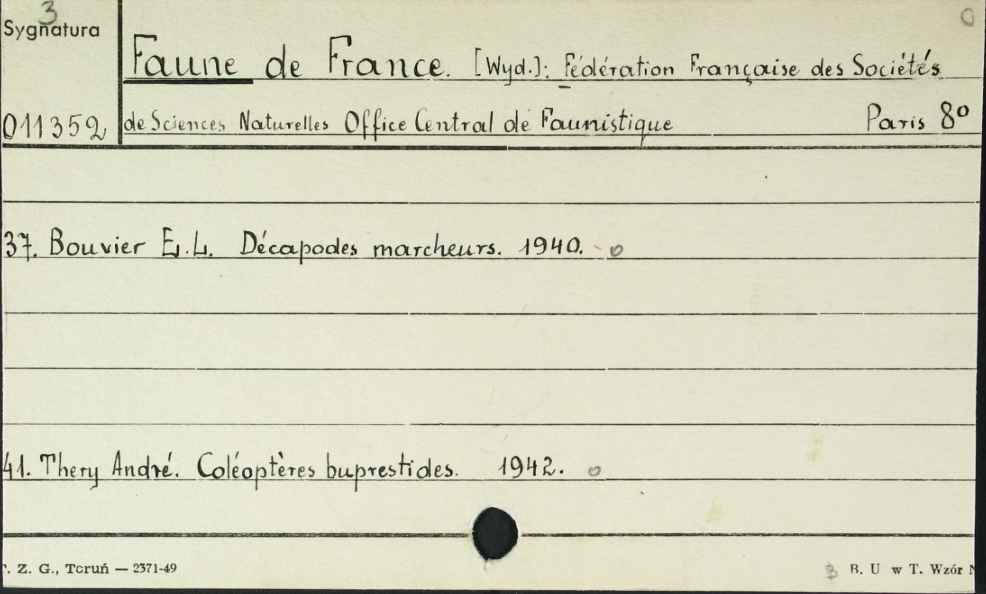 3
Sygnatura
O
Faune de France. [Wyd.]: Fédération Française des Sociétés
011352
de Sciences Naturelles Office Central de Faunistique Paris 8º
37. Bouvier E. L. Décapodes marcheurs. 1940. o
41. Thery André. Coléoptères buprestides. 1942. o
. Z. G., Toruń — 2371-49
3 B. U w T. Wzór